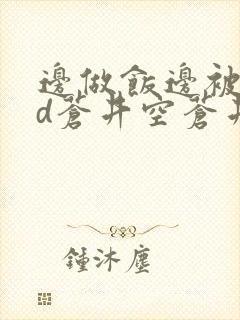 邊做飯邊被
d蒼井空蒼井
鍾沐塵